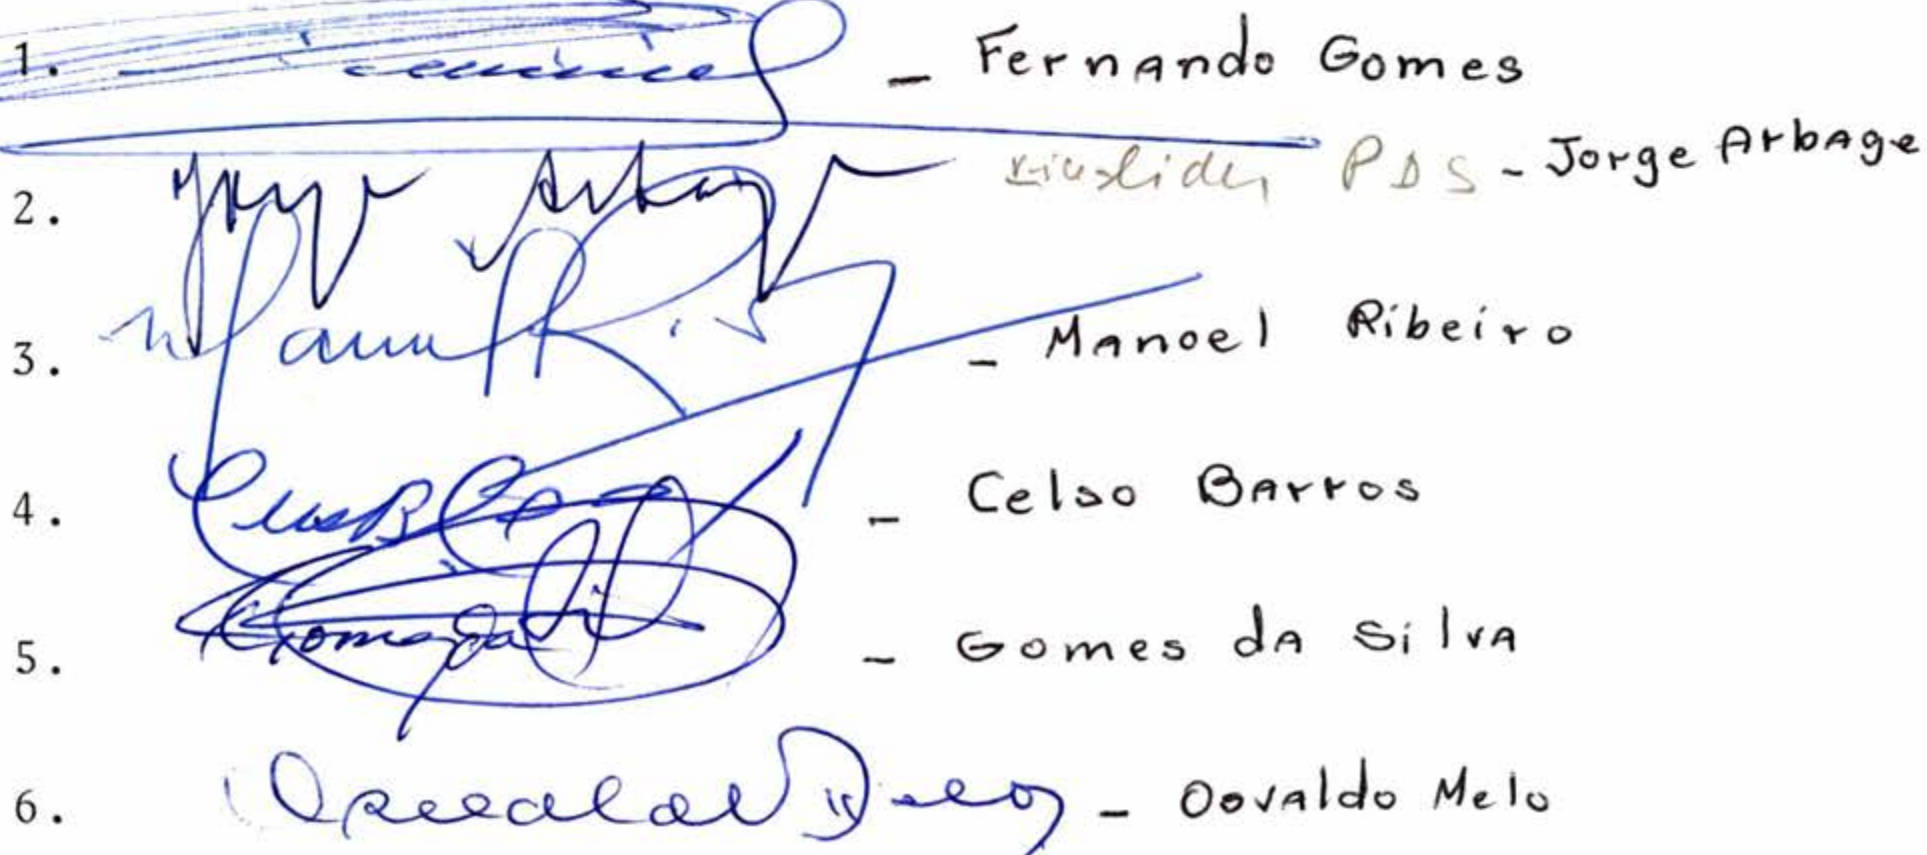 1. - Fernando Gomes
2. Jorge Arbage vice-lider PDS - Jorge Arbage
3. - Manoel Ribeiro
4. - Celso Barros
5. Gomes da - Gomes da Silva
6. - Osvaldo Melo